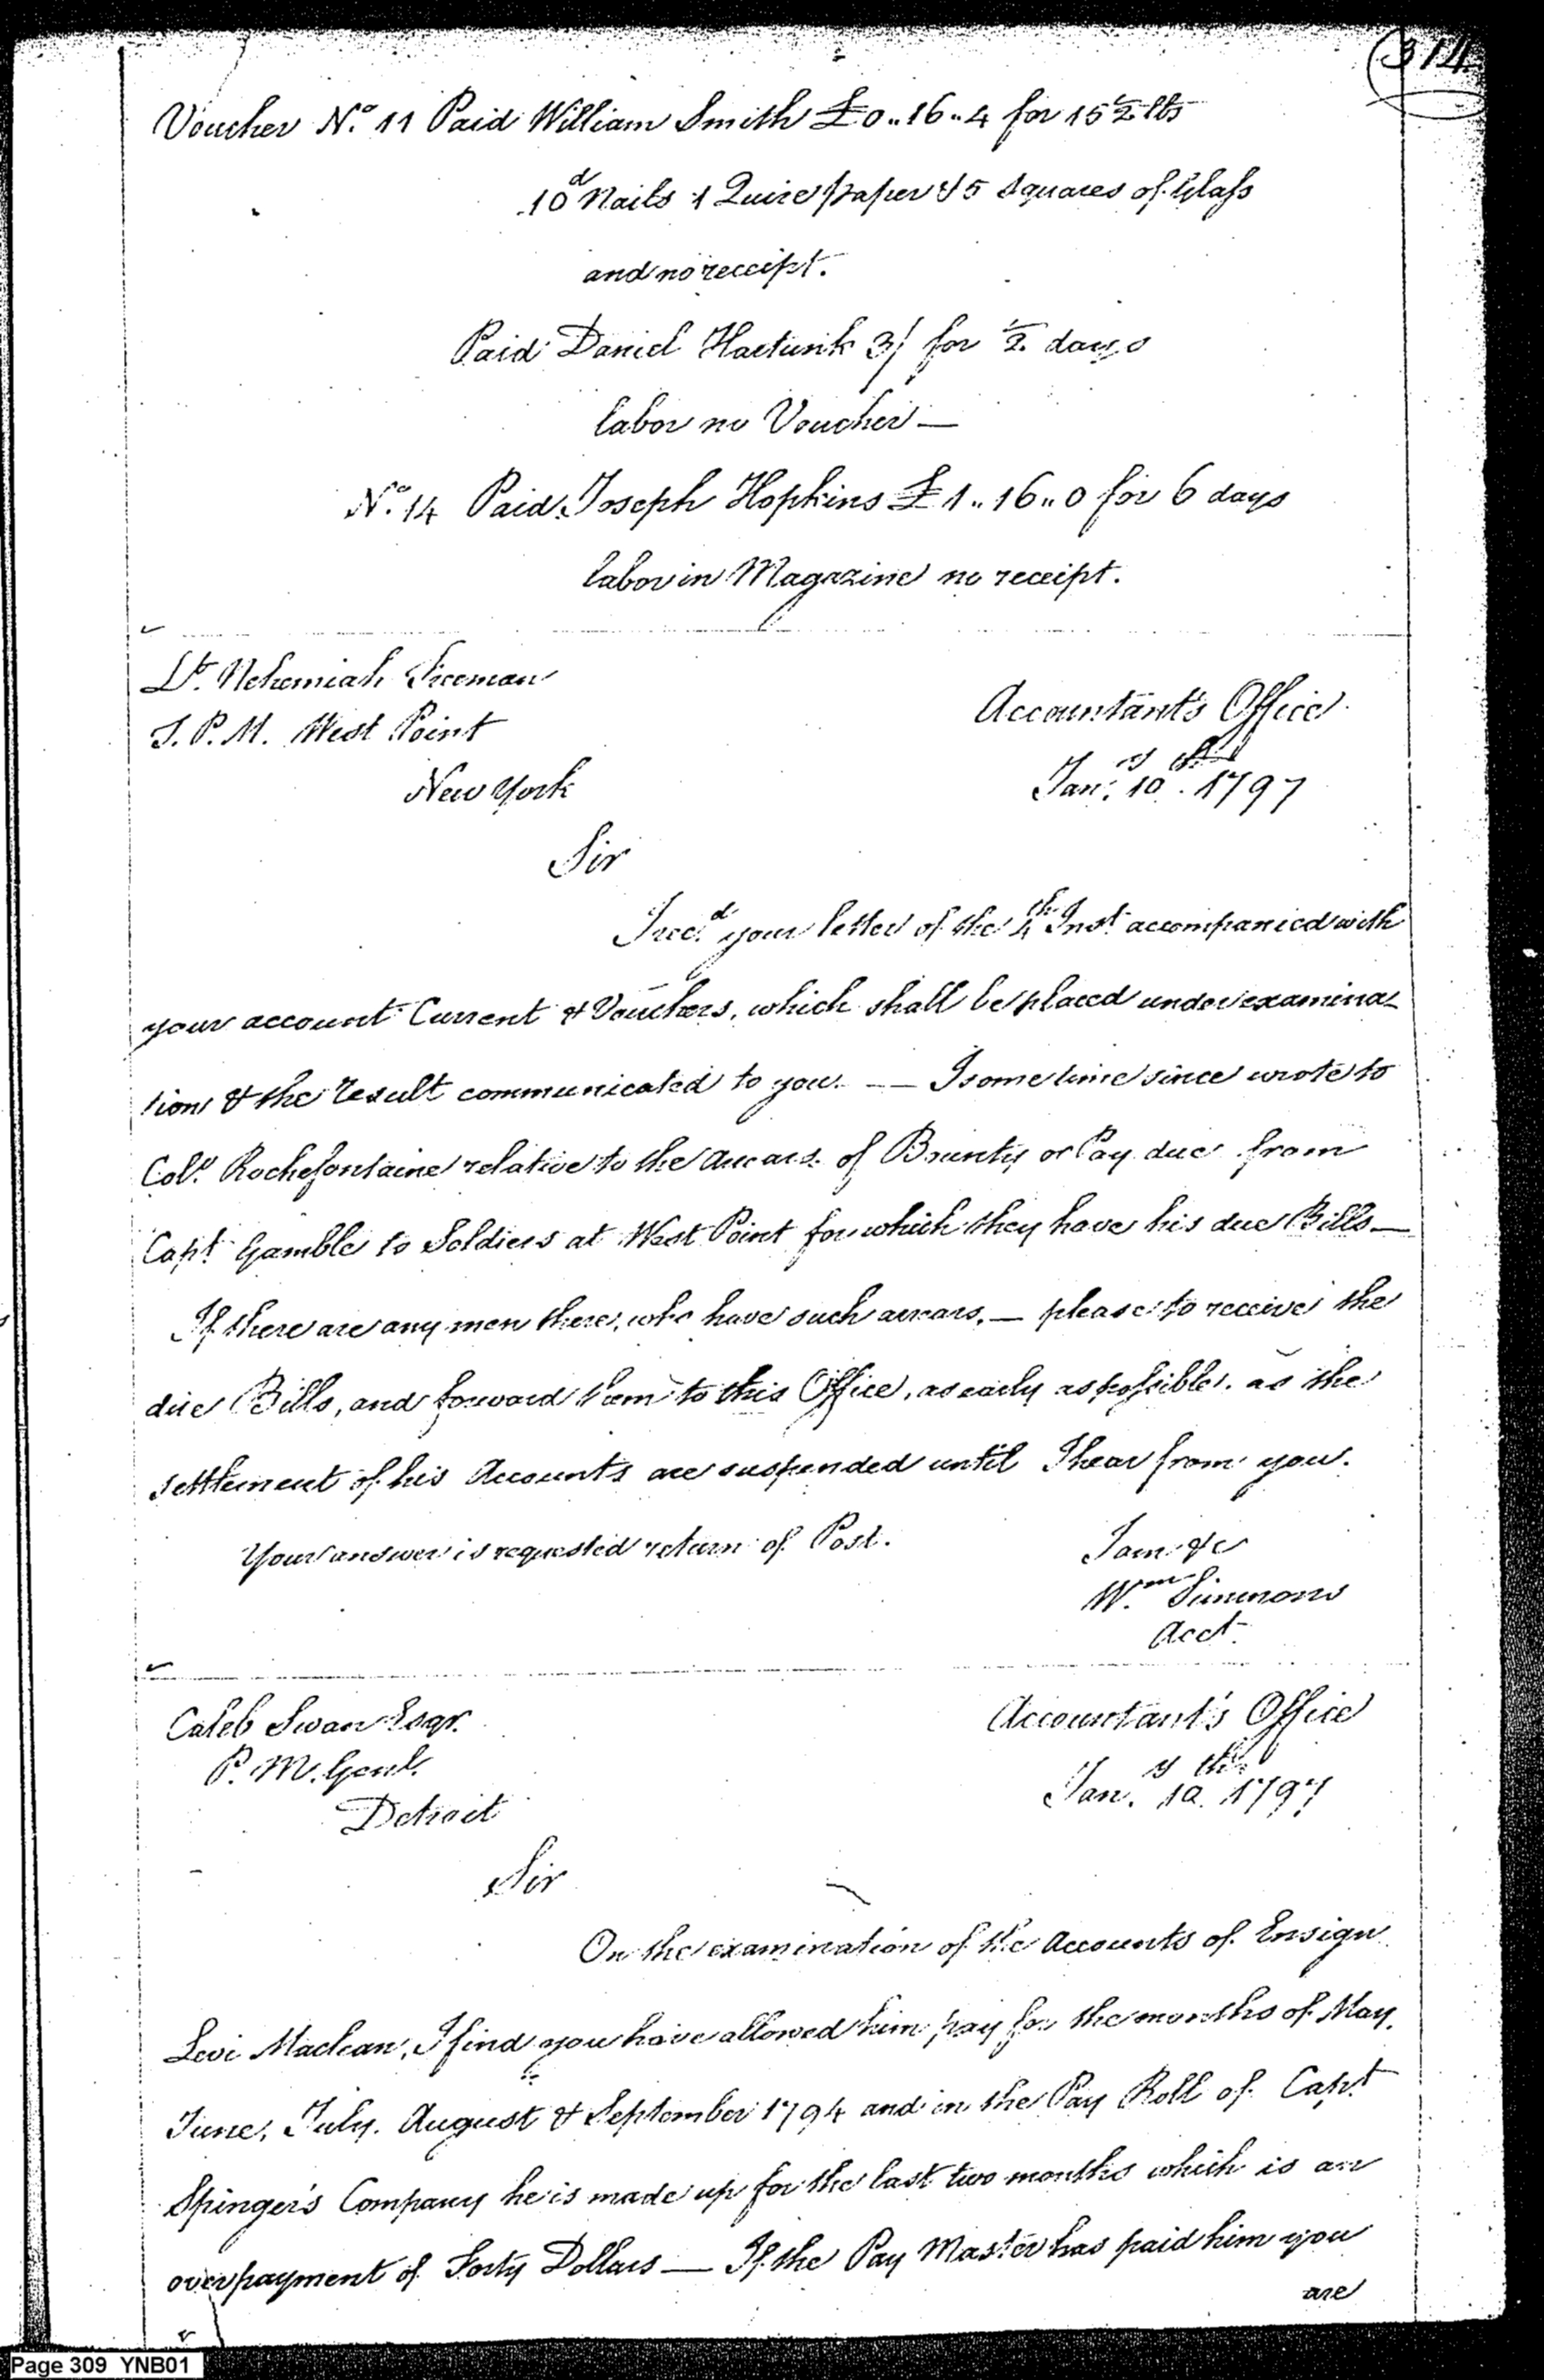 314
Voucher No. 11 Paid William Smith £0..16..4 for 15 1/2 lbs
10d Nails 1 Quire paper & 5 Squares of Glass
and no receipt.
Paid Daniel Hartunk 3/ for 1/2 days
labor no Voucher —
No. 14 Paid Joseph Hopkins £1..16..0 for 6 days
labor in Magazine no receipt.
Lt. Nehemiah Freeman
J. P. M. West Point
New York
Accountant's Office
Jany. 10th. 1797
Sir
I recd. your letter of the 4th Inst. accompanied with
your account Current & Vouchers, which shall be placed under examina-
tion & the result communicated to you. — — I some time since wrote to
Colo. Rochefontaine relative to the arrears of Bounty or Pay due from
Capt. Gamble to Soldiers at West Point for which they have his due Bills —
If there are any men there, who have such arrears, — please to receive the
due Bills, and forward them to this Office, as early as possible, as the
settlement of his Accounts are suspended until I hear from you.
Your answer is requested return of Post.
I am &c
Wm. Simmons
Acct.
Caleb Swan Esqr.
P. M. Genl.
Detroit
Accountant's Office
Jany. 10th. 1797
Sir
On the examination of the Accounts of Ensign
Levi Maclean, I find you have allowed him pay for the months of May,
June, July, August & September 1794 and in the Pay Roll of Capt
Spinger's Company he is made up for the last two months which is an
overpayment of Forty Dollars — If the Pay Master has paid him you
are
Page 309 YNB01